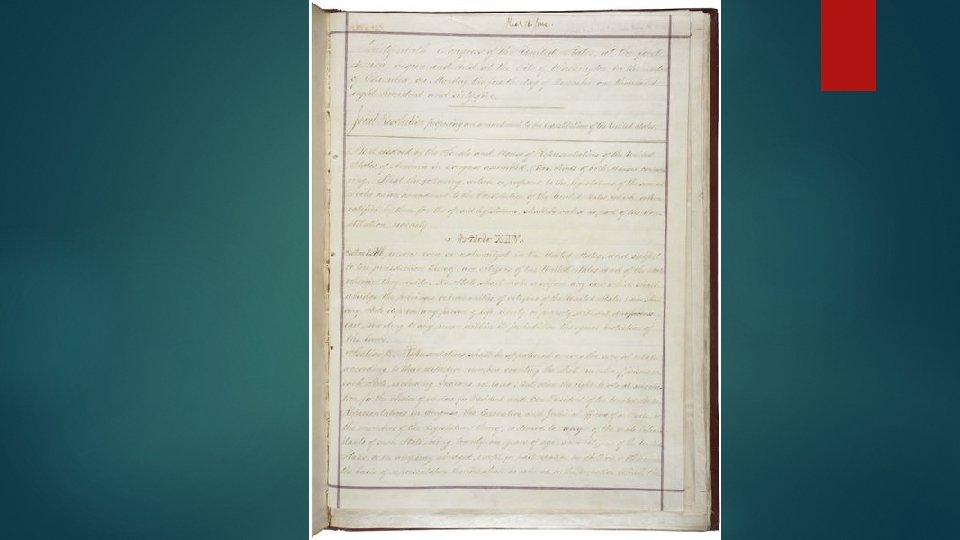 Congress of the United States, at the first
Session, begun and held at the City of Washington, in the
of December, on Monday the fourth day of December one thousand
eight hundred and sixty-five.
Joint Resolution proposing an amendment to the Constitution of the United States.
Be it resolved by the Senate and House of Representatives of the United
States of America in Congress assembled, two thirds of both Houses
That the following article be proposed to the legislatures of the several
States as an amendment to the Constitution of the United States, which, when
ratified by three fourths of said legislatures, shall be valid as part of the Con-
stitution, namely
Article XIV.
born or naturalized in the United States, and subject
to the jurisdiction thereof, are citizens of the United States and of the State
wherein they reside. No State shall make or enforce any law which shall
abridge the privileges or immunities of citizens of the United States; nor shall
any State deprive any person of life, liberty, or property, without due process
law, nor deny to any person within its jurisdiction the equal protection of
the laws.
Section 2. Representatives shall be apportioned among the several States
according to their respective numbers, counting the whole number of persons in
each State, excluding Indians not taxed. But when the right to vote at any elec-
tion for the choice of electors for President and Vice President of the United States,
Representatives in Congress, the Executive and Judicial officers of a State, or
the members of the Legislature thereof, is denied to any of the male inhabi-
tants of such State, being twenty-one years of age, and citizens of the United
States, or in any way abridged, except for participation in rebellion, or other
the basis of representation therein shall be reduced in the proportion which the